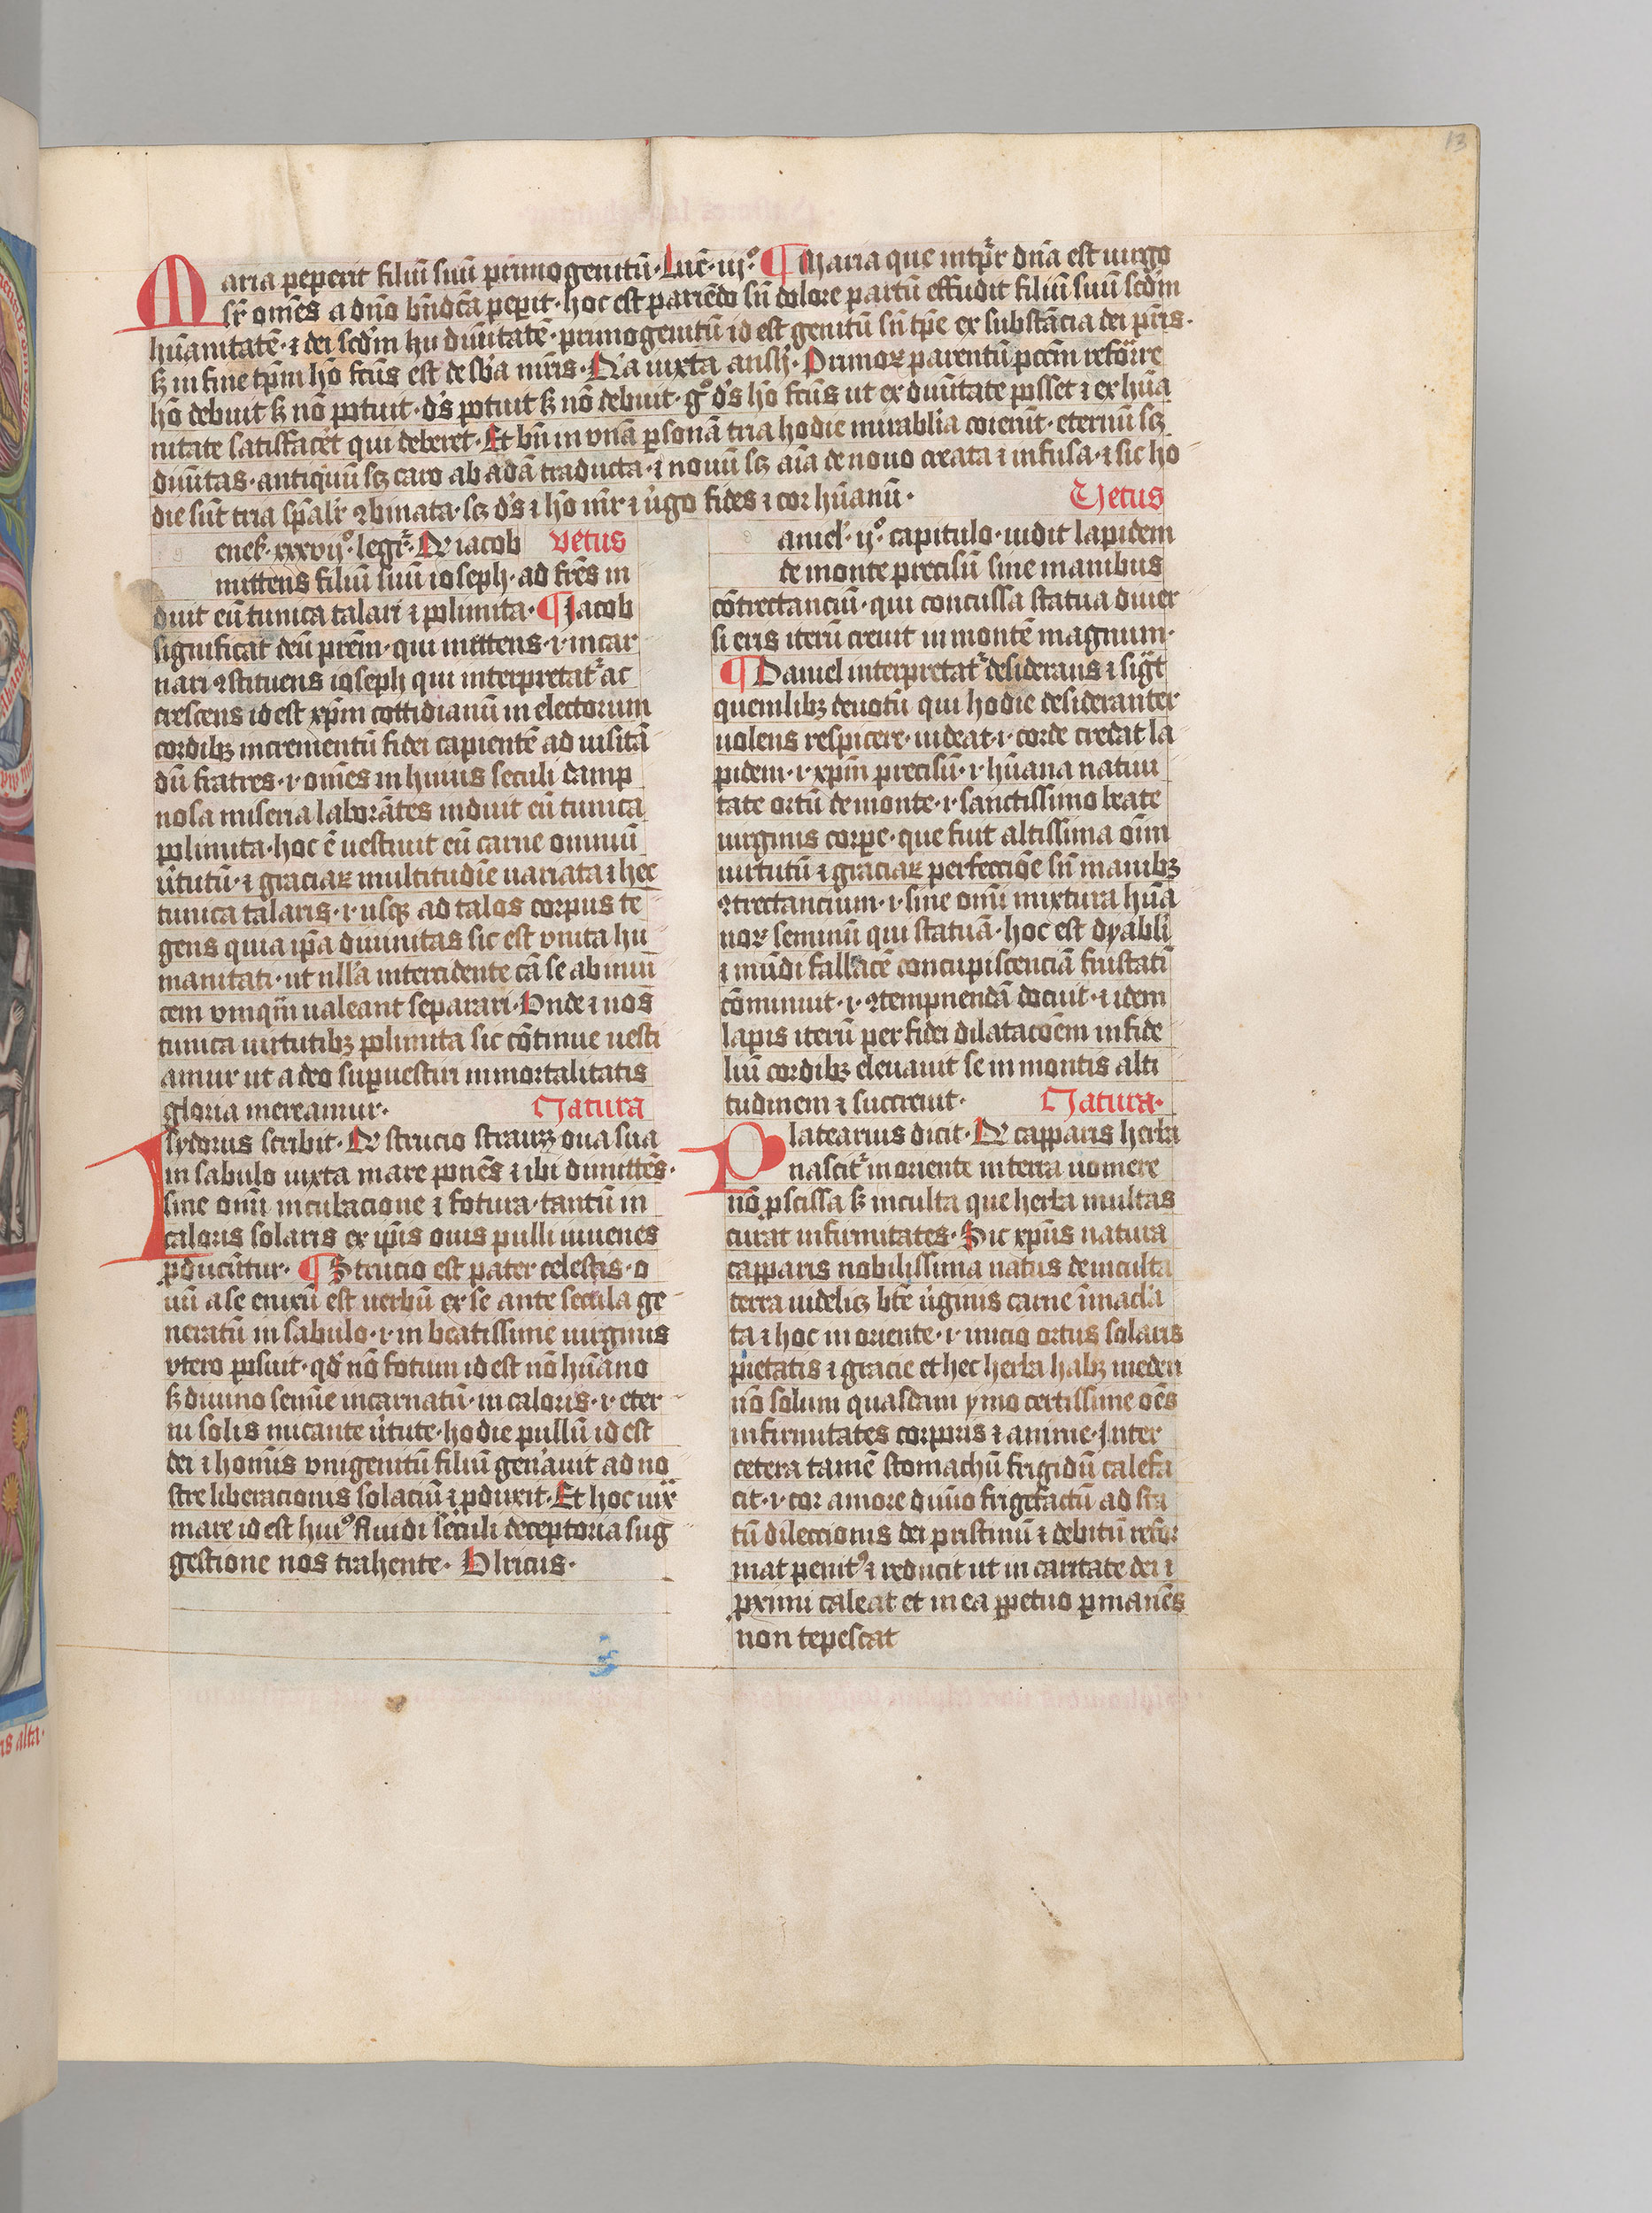 13
Maria peperit filiū suū primogenitū· Luc̄· ij° ¶ Maria que intp̄r dn̄a est uirgo
sr̄ om̄es a dn̄o bn̄dc̄a peꝑit· hoc est pariēdo sn̄ dolore partū effudit filiū suū scd̄m
hūanitatē· ⁊ dei scd̄m hu diūitatē· primogenitū id est genitū sn̄ tp̄e ex substācia dei pr̄is·
sꝫ in fine tp̄m hō fc̄us est de sb̄a mr̄is· Nā iuxta ansl̄· Primoꝝ parentū pccm̄ refor̄re
hō debuit sꝫ nō potuit· ds̄ potuit sꝫ nō debuit· g° ds̄ hō fc̄us ut ex diūitate posset ⁊ ex hūa
nitate satisfac̄et qui deberet· Et bn̄ in vnā ꝑsonā tria hodie mirab̄lia coierūt· eternū scꝫ
diūitas· antiquū scꝫ caro ab adā traducta· ⁊ nouū scꝫ aīa de nouo creata ⁊ infusa· ⁊ sic ho
die sūt tria sp̄alr̄ ꝯbinata· scꝫ ds̄ ⁊ hō mr̄ ⁊ ūgo fides ⁊ cor hūanū· Vetus
enes̄· xxxvij° legr̄· De iacob vetus
mittens filiū suū ioseph· ad fr̄es in
duit eū tunica talari ⁊ polimita· ¶ Jacob
significat deū prēm· qui mittens· ·i· incar
nari ꝯstituens ioseph qui interpretat̄ ac
crescens id est xp̄m cottidianū in electorum
cordibꝫ incrementū fidei capientē ad uisitā
dū fratres· ·i· om̄es in huius seculi damp
nosa miseria laborātes induit eū tunica
polimita· hoc ē uestiuit eū carne omniū
ūtutū· ⁊ graciaꝝ multitudīe uariata ⁊ hec
tunica talaris· ·i· usqꝫ ad talos corpus te
gens quia ip̄a diuinitas sic est vnita hu
manitati· ut nll̄a intercidente cā se ab inui
cem vniqm̄ ualeant separari· Vnde ⁊ nos
tunica uirtutibꝫ polimita sic cōtinue uesti
amur ut a deo suꝑuestiri inmortalitatis
gloria mereamur· Natura
Isydorus scribit· De strucio strauzz oua sua
in sabulo iuxta mare ponēs ⁊ ibi dimittēs·
sine omī incubacione ⁊ fotura· tantū in
caloris solaris ex ip̄is ouis pulli iuuenes
ꝓducūtur· ¶ Strucio est pater celestis· o
uū a se enixū est uerbū ex se ante secula ge
neratū in sabulo· ·i· in beatissime uirginis
vtero posuit· qd̄ nō fotum id est nō hūano
sꝫ diuino semīe incarnatū· in caloris· ·i· eter
ni solis micante ūtute· hodie pullū id est
dei ⁊ homīs vnigenitū filiū gen̄auit ad no
stre liberacionis solaciū ⁊ ꝓduxit· Et hoc iux̄
mare id est hui° fluidi seculi deceptoria sug
gestione nos trahente· Vlricus·
aniel· ij° capitulo· uidit lapidem
de monte precisū sine manibus
cōtrectanciū· qui concussa statua diuer
si eris iterū creuit in montē magnum·
¶ Daniel interpretat̄ desiderans ⁊ sigt̄
quemlibꝫ deuotū qui hodie desideranter
uolens respicere· uideat· ·i· corde credat la
pidem· ·i· xp̄m precisū· ·i· hūana natiui
tate ortū de monte· ·i· sanctissimo beate
uirginis corꝑe· que fuit altissima oīm
uirtutū ⁊ graciaꝝ perfeccione sn̄ manibꝫ
ꝯtrectancium· ·i· sine omī mixtura hūa
noꝝ seminū qui statuā· hoc est dyabli
⁊ mūdi fallacē concupiscenciā frustati
cōminuit· ·i· ꝯtempnendā docuit· ⁊ idem
lapis iterū per fidei dilatacōem in fide
liū cordibꝫ eleuauit se in montis alti
tudinem ⁊ succreuit· Natura·
Platearius dicit· De capparis herba
nascit̄ in oriente in terra uomere
nō ꝓscissa sꝫ inculta que herba multas
curat infirmitates· Sic xp̄us natura
capparis nobilissima natus de inculta
terra uidelicꝫ bt̄e ūginis carne īmacla
ta ⁊ hoc in oriente· ·i· inicio ortus solaris
pietatis ⁊ gracie et hec herba habꝫ mederi
nō solum quasdam ymo certissime oēs
infirmitates corporis ⁊ anime· Inter
cetera tamē stomachū frigidū calefa
cit· ·i· cor amore diuīo frigefactū ad sta
tū dileccionis dei pristinū ⁊ debitū refor
mat penit° ⁊ reducit ut in caritate dei ⁊
ꝓximi caleat et in ea ꝑpetuo ꝑmanēs
non tepescat
is alta·